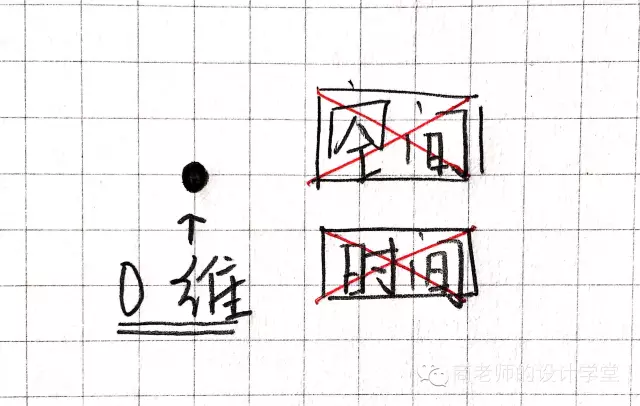 空间
时间
0维
商老师的设计学堂